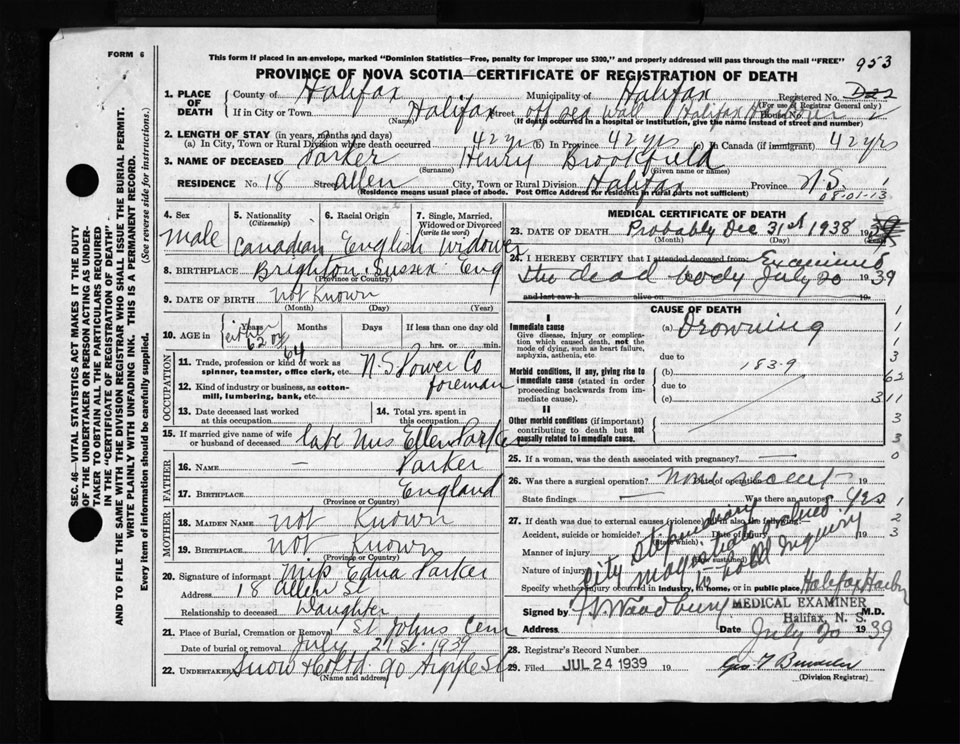 FORM 6
This form if placed in an envelope, marked "Dominion Statistics—Free, penalty for improper use $300," and properly addressed will pass through the mail "FREE"
953
PROVINCE OF NOVA SCOTIA—CERTIFICATE OF REGISTRATION OF DEATH
SEC. 46—VITAL STATISTICS ACT MAKES IT THE DUTY
OF THE UNDERTAKER OR PERSON ACTING AS UNDER-
TAKER TO OBTAIN ALL THE PARTICULARS REQUIRED
IN THE "CERTIFICATE OF REGISTRATION OF DEATH"
AND TO FILE THE SAME WITH THE DIVISION REGISTRAR WHO SHALL ISSUE THE BURIAL PERMIT.
WRITE PLAINLY WITH UNFADING INK. THIS IS A PERMANENT RECORD.
Every item of information should be carefully supplied. (See reverse side for instructions.)
1. PLACE OF DEATH County of Halifax Municipality of Halifax Registered No.
(For use of Registrar General only)
If in City or Town Halifax Street off sea wal Halifax House No. 2
(Name) (If death occurred in a hospital or institution, give the name instead of street and number)
2. LENGTH OF STAY (in years, months and days)
(a) In City, Town or Rural Division where death occurred 42 yr (b) In Province 42 yrs (c) In Canada (if immigrant) 42 yrs
3. NAME OF DECEASED Parker Henry Brookfield
(Surname) (Given name or names)
RESIDENCE No. 18 Street Allen City, Town or Rural Division Halifax Province N.S. 1
(Residence means usual place of abode. Post Office Address for residents in rural parts not sufficient)
08-01-13
4. Sex 5. Nationality (Citizenship) 6. Racial Origin 7. Single, Married, Widowed or Divorced (Write the word)
Male Canadian English Widower
8. BIRTHPLACE Brighton Sussex Eng
(Province or Country)
9. DATE OF BIRTH not Known
(Month) (Day) (Year)
10. AGE in Years Months Days If less than one day old
either 62 or 64 hrs. or min.
OCCUPATION
11. Trade, profession or kind of work as spinner, teamster, office clerk, etc. N.S Power Co
12. Kind of industry or business, as cotton-mill, lumbering, bank, etc. foreman
13. Date deceased last worked at this occupation
14. Total yrs. spent in this occupation
15. If married give name of wife or husband of deceased late Mrs Ellen Parker
FATHER
16. NAME — Parker
17. BIRTHPLACE England
(Province or Country)
MOTHER
18. MAIDEN NAME not Known
19. BIRTHPLACE not Known
(Province or Country)
20. Signature of informant Miss Edna Parker
Address 18 Allen St
Relationship to deceased Daughter
21. Place of Burial, Cremation or Removal St Johns Cem
Date of burial or removal July 21st 1939
22. UNDERTAKER Snow & Co Ltd 90 Argyle St
(Name and address)
MEDICAL CERTIFICATE OF DEATH
23. DATE OF DEATH Probably Dec 31st 1938 19
(Month) (Day) (Year)
24. I HEREBY CERTIFY that I attended deceased from Examined
the dead body July 20 1939
and last saw h alive on 19
CAUSE OF DEATH
I
Immediate cause (a) Drowning
Give disease, injury or complication which caused death, not the mode of dying, such as heart failure, asphyxia, asthenia, etc.
due to
Morbid conditions, if any, giving rise to immediate cause (stated in order proceeding backwards from immediate cause).
(b) 183.9
due to
(c)
II
Other morbid conditions (if important) contributing to death but not causally related to immediate cause.
1
1
1
3
62
311
3
3
3
25. If a woman, was the death associated with pregnancy? — 0
26. Was there a surgical operation? None recent Date of operation 19
State findings — Was there an autopsy? yes 1
27. If death was due to external causes (violence) fill in also the following:— 2
Accident, suicide or homicide? (State which) Date of injury 19 3
Manner of injury (How sustained)
Nature of injury
City Stipendiary
Magistrate
to hold Inquiry
Specify whether injury occurred in industry, in home, or in public place Halifax Harbr
Signed by Woodbury MEDICAL EXAMINER M.D.
Halifax, N. S.
Address Date July 20 1939
28. Registrar's Record Number
29. Filed JUL 24 1939 19
(Division Registrar)